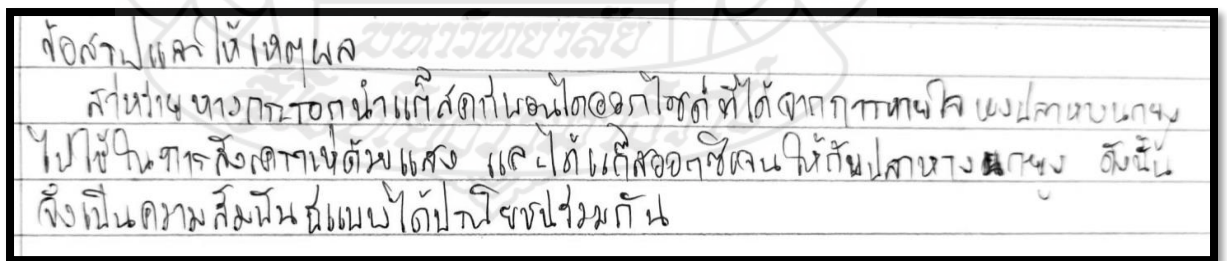 ข้อสรุปและให้เหตุผล
สาหร่ายหางกระรอกนำแก๊สคาร์บอนไดออกไซด์ที่ได้จากการหายใจของปลาหางนกยูง
ไปใช้ในการสังเคราะห์ด้วยแสง และได้แก๊สออกซิเจนให้กับปลาหางนกยูง ดังนั้น
จึงเป็นความสัมพันธ์แบบได้ประโยชน์ร่วมกัน